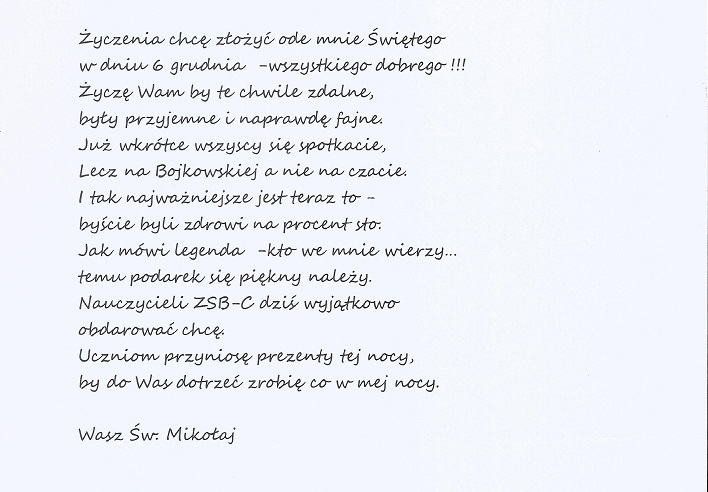 Życzenia chcę złożyć ode mnie Świętego
w dniu 6 grudnia -wszystkiego dobrego !!!
Życzę Wam by te chwile zdalne,
były przyjemne i naprawdę fajne.
Już wkrótce wszyscy się spotkacie,
Lecz na Bojkowskiej a nie na czacie.
I tak najważniejsze jest teraz to -
byście byli zdrowi na procent sto.
Jak mówi legenda -kto we mnie wierzy...
temu podarek się piękny należy.
Nauczycieli ZSB-C dziś wyjątkowo
obdarować chcę.
Uczniom przyniosę prezenty tej nocy,
by do Was dotrzeć zrobię co w mej nocy.

Wasz Św. Mikołaj